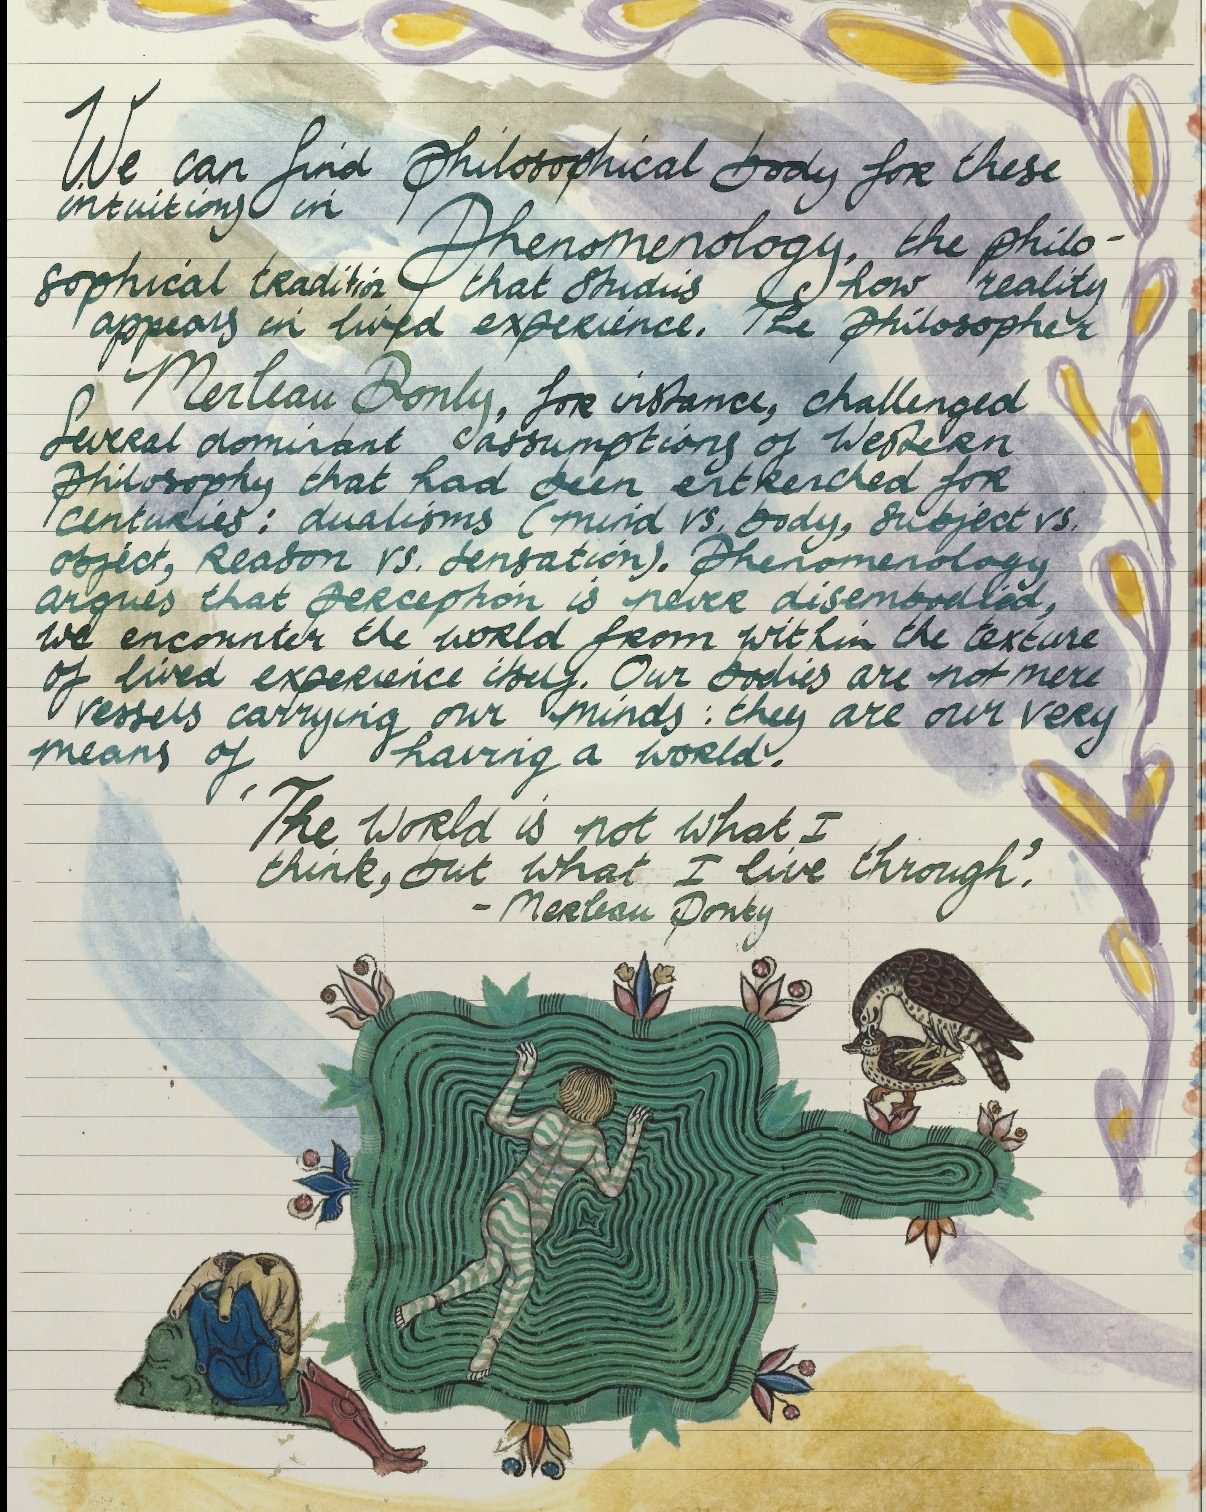 We can find philosophical body for these
intuitions in
Phenomenology, the philo-
sophical tradition that studies how reality
appears in lived experience. The philosopher
Merleau Ponty, for instance, challenged
several dominant assumptions of Western
philosophy that had been entrenched for
centuries: dualisms (mind vs. body, subject vs.
object, reason vs. sensation). Phenomenology
argues that perception is never disembodied,
we encounter the world from within the texture
of lived experience itself. Our bodies are not mere
vessels carrying our minds: they are our very
means of having a world.
'The world is not what I
think, but what I live through'.
- Merleau Ponty